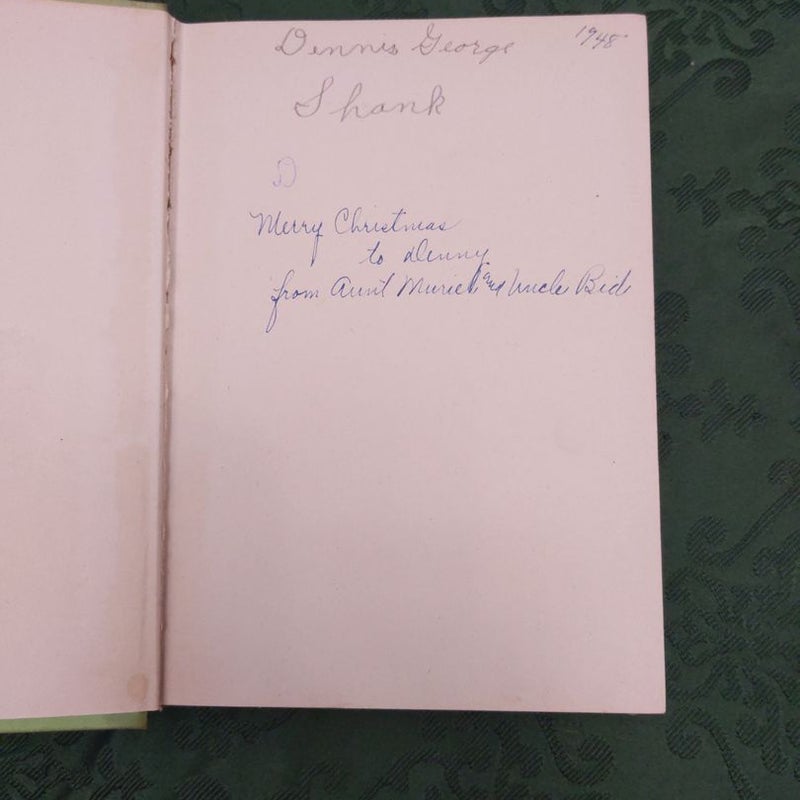 Dennis George 1948
Shank
D
Merry Christmas
to Denny
from Aunt Muriel and Uncle Bid